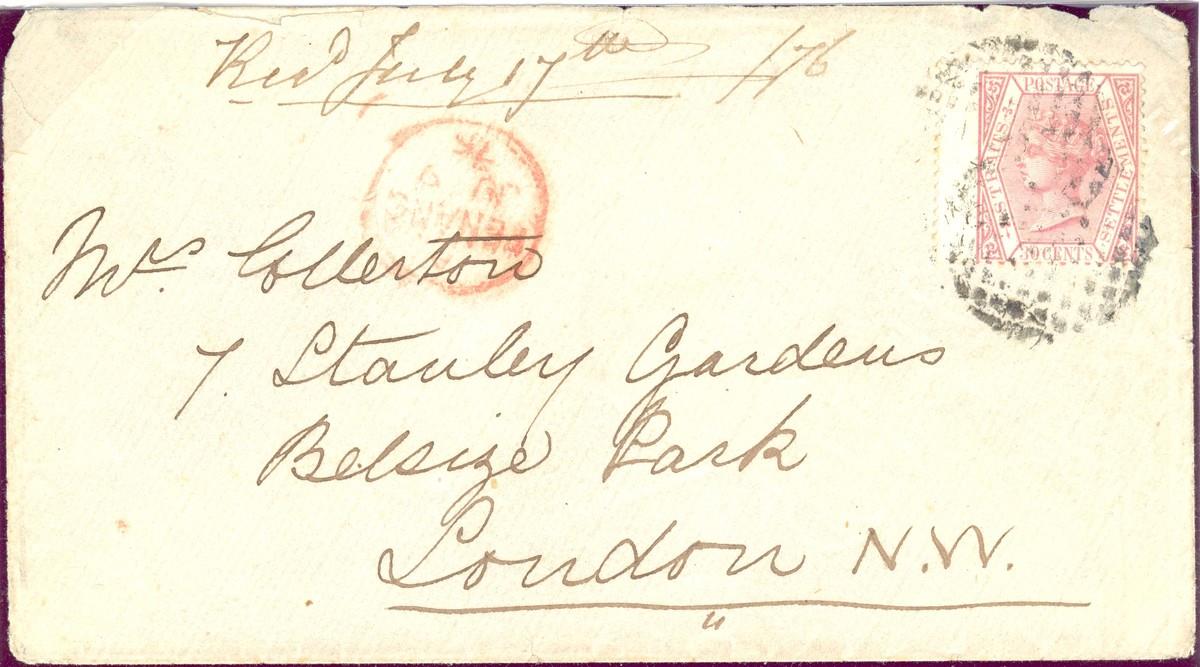 Recd July 17th /76
POSTAGE
STRAITS SETTLEMENTS
30 CENTS
Mrs Collerton
7 Stanley Gardens
Belsize Park
London N.W.